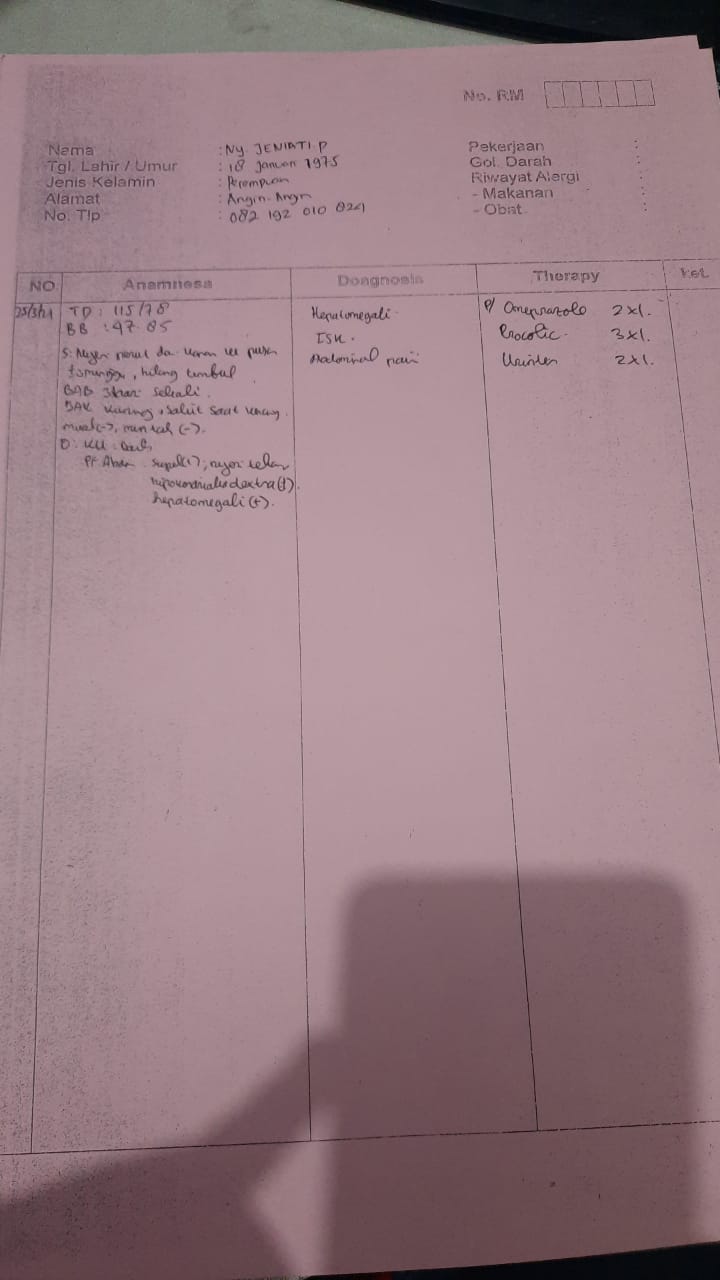 No. RM
Nama : NY. JENIATI P
Tgl. Lahir / Umur : 18 Januari 1975
Jenis Kelamin : Perempuan
Alamat : Angin-Angin
No. Tlp : 082 192 010 824
Pekerjaan :
Gol. Darah :
Riwayat Alergi
- Makanan :
- Obat :
NO Anamnesa Dongnosis Therapy Ket
TD : 115/78
BB : 47.85
S: Nyeri perut
hilang timbul
BAB sekali.
BAK kuning, sakit saat
mual(-), muntah (-).
O: KU : Baik
nyeri tekan
dextra (+).
hepatomegali (+).
Hepatomegali
ISK.
Abdominal pain
P/ Omeprazole 2x1.
Procolic 3x1.
Urinter 2x1.